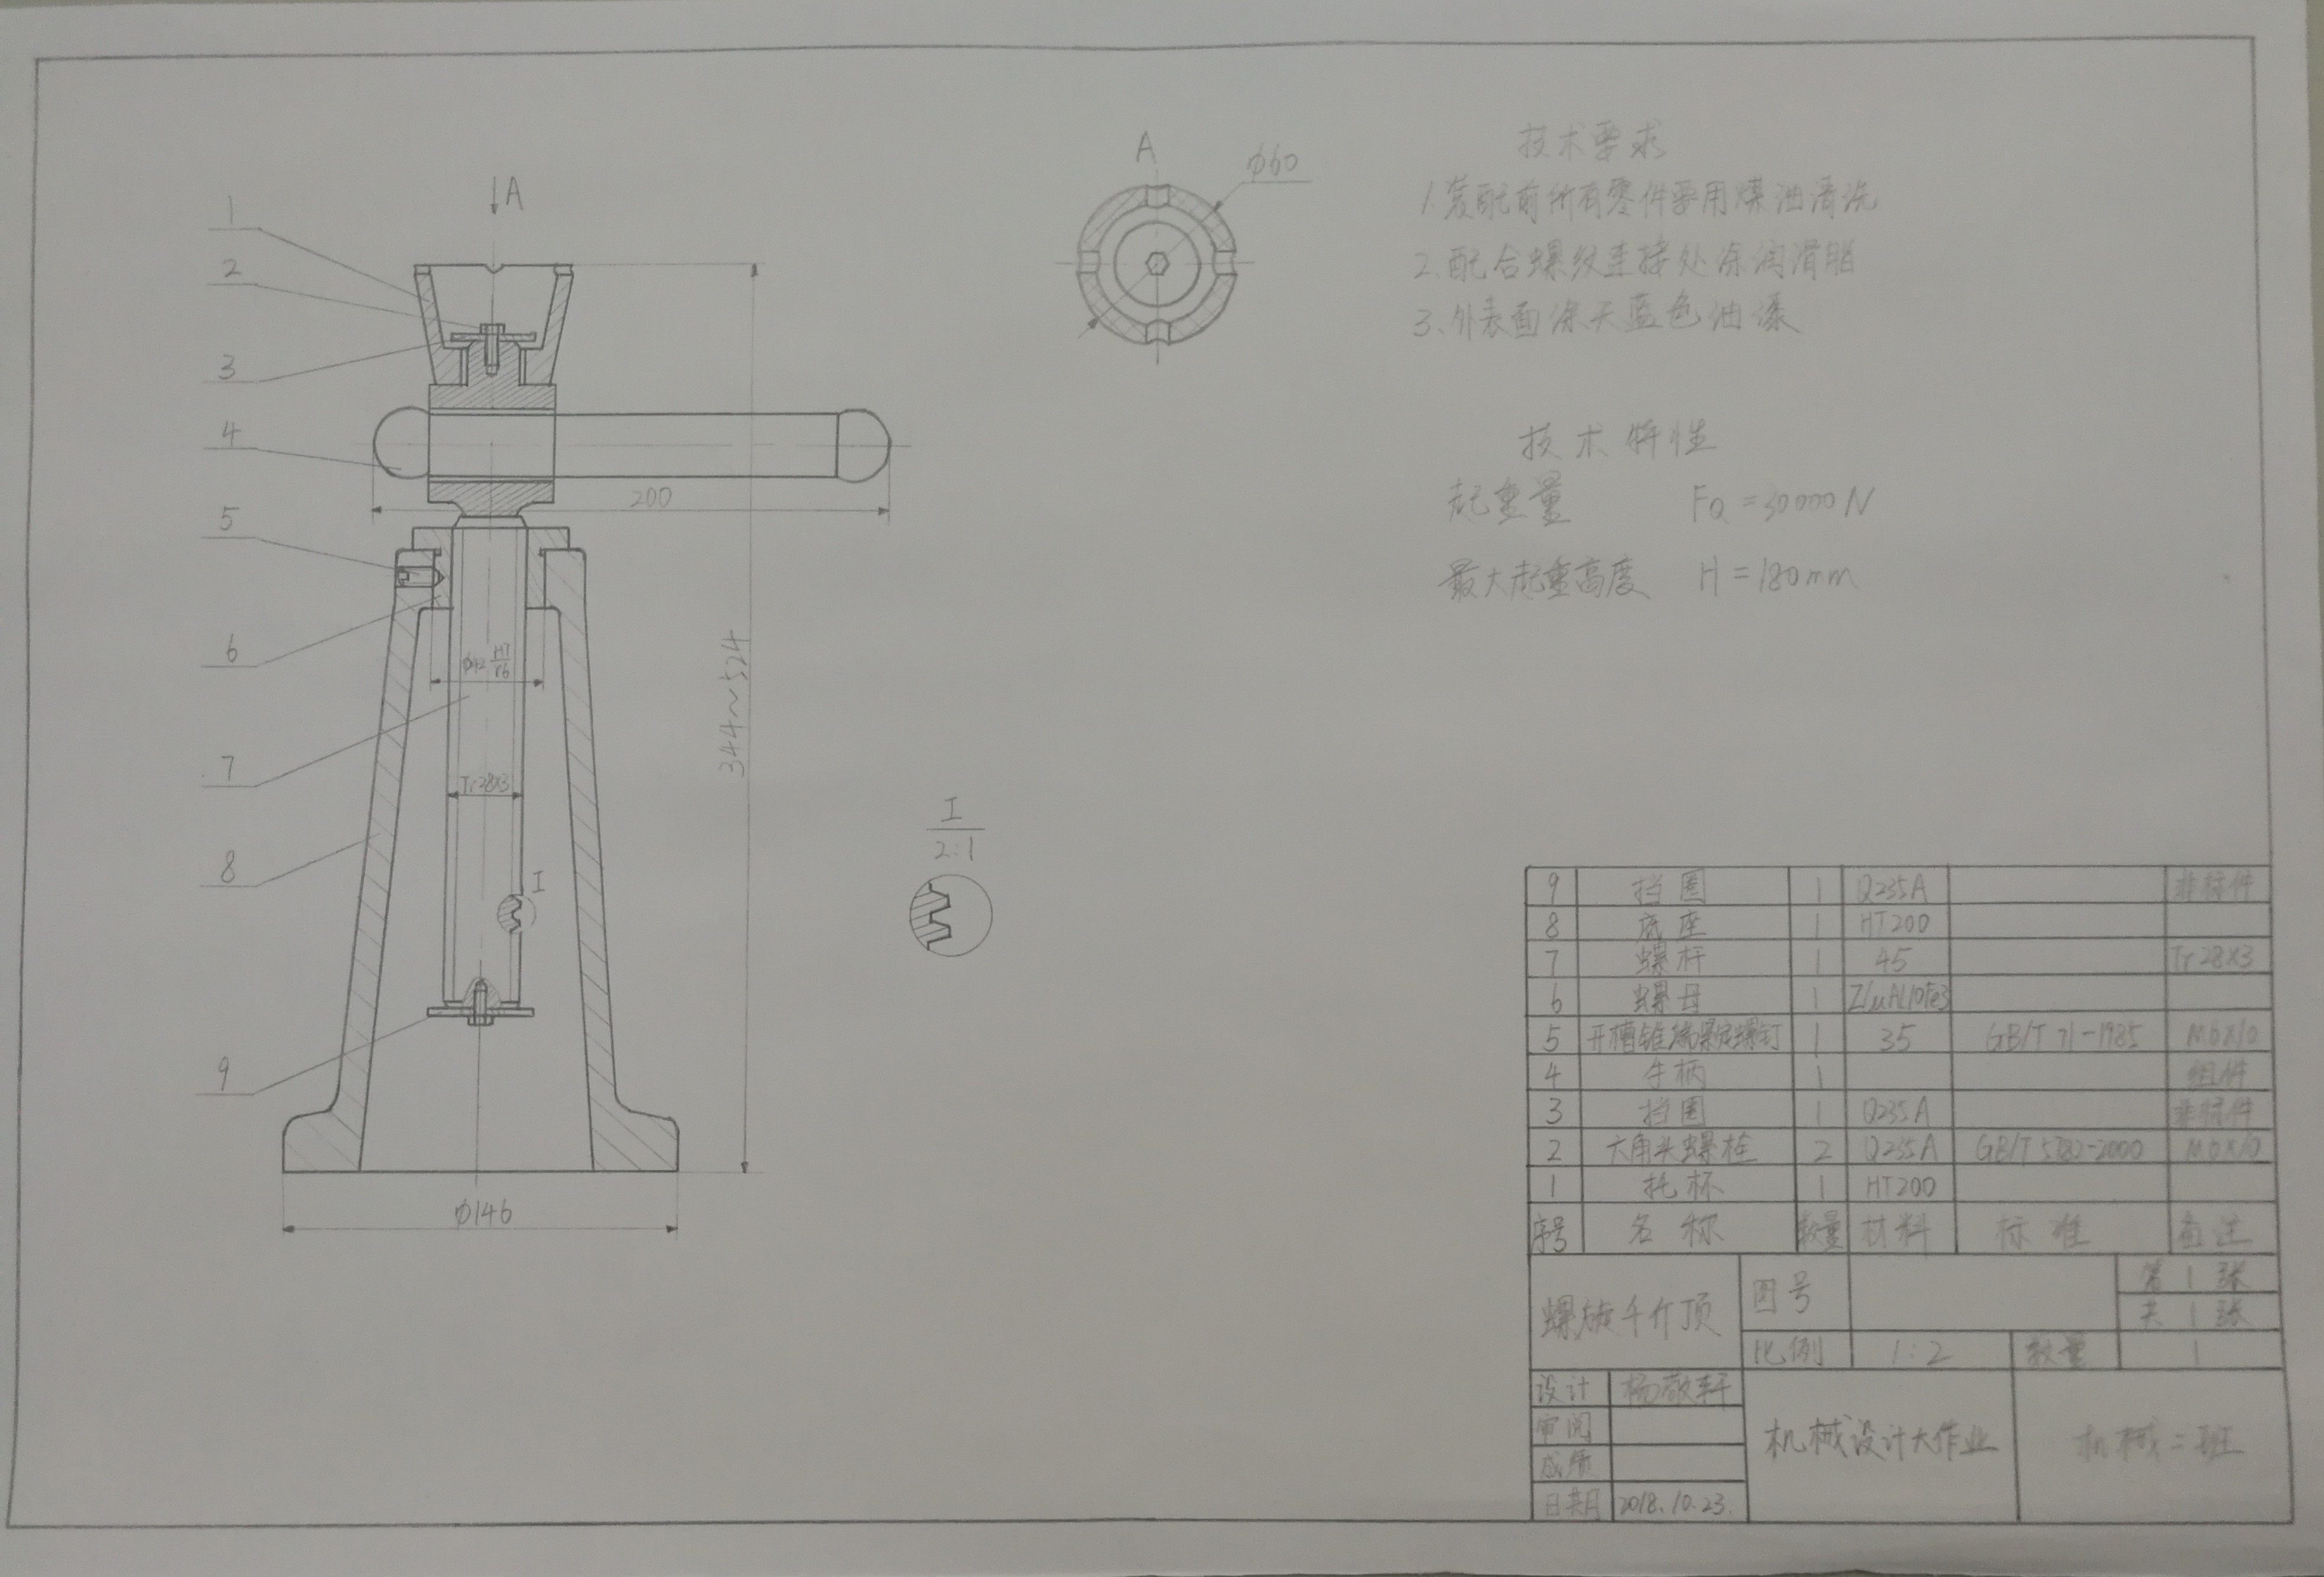 A
1
2
3
4
5
6
7
8
9
200
φ42 H7/r6
Tr28×3
I
344~524
φ146
A
φ60
I
2:1
技术要求
1.装配前所有零件要用煤油清洗
2.配合螺纹连接处涂润滑脂
3.外表面涂天蓝色油漆
技术特性
起重量 FQ=30000N
最大起重高度 H=180mm
9 挡圈 1 Q235A 非标件
8 底座 1 HT200
7 螺杆 1 45 Tr28×3
6 螺母 1 ZCuAl10Fe3
5 开槽锥端紧定螺钉 1 35 GB/T 71-1985 M6×10
4 手柄 1 组件
3 挡圈 1 Q235A 非标件
2 六角头螺栓 2 Q235A GB/T 5782-2000 M6×10
1 托杯 1 HT200
序号 名称 数量 材料 标准 备注
螺旋千斤顶 图号 第1张
共1张
比例 1:2 数量 1
设计 杨敬轩
审阅
成绩
日期 2018.10.23.
机械设计大作业 机械二班